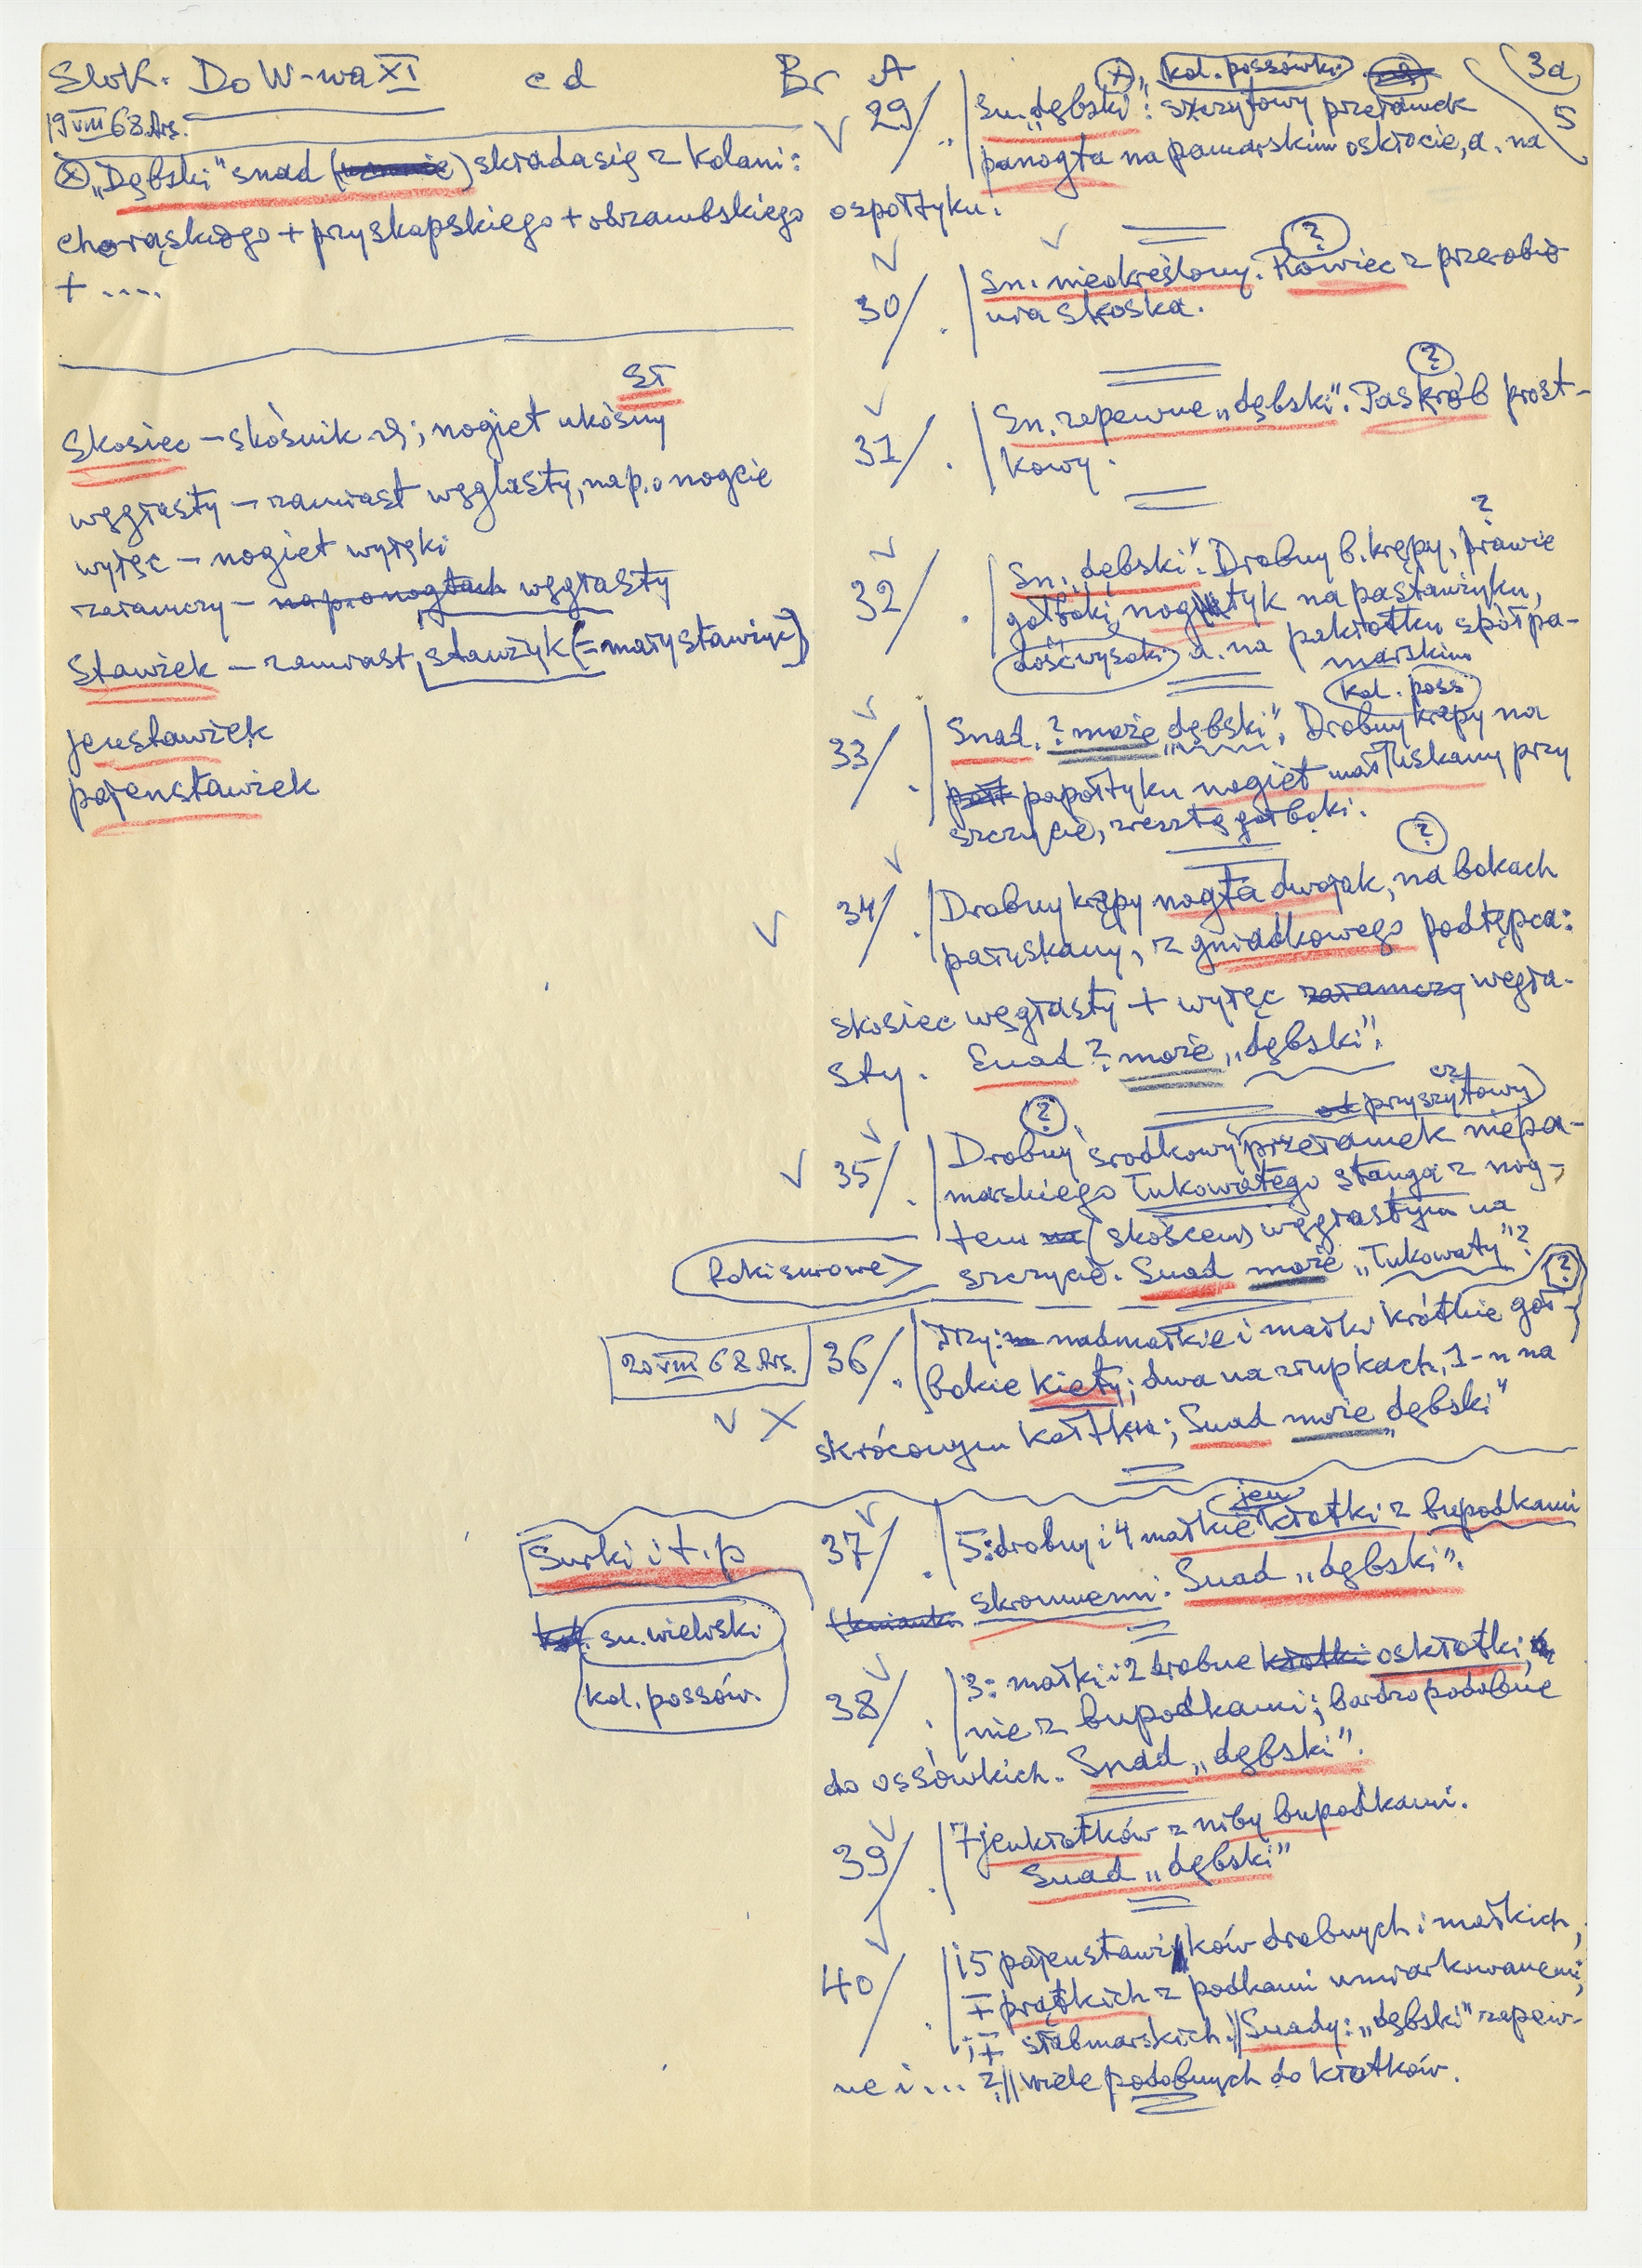 Słok. Do W-wa XI c d Br A
19 VIII 68. Ars.
3a
5
⊗ „Dębski" snad składa się z kolani:
chorąskiego + pryskapskiego + obrzambskiego
+ ....
SŁ
Skosiec – skośnik ; nogiet ukośny
węgłasty – zamiast węglasty, nap. o nogcie
wyłęc – nogiet wyłęki
załamczy – nap. o nogłach węgłasty
Stawżek – zamiast stawżyk (= mały stawżyc)
jenstawżek
pałenstawżek
kol. possówki
29/. Sn. „dębski": szczytowy przełamek
panogta na pamarskim oskrocie, a. na
ospołtyku.
?
30/. Sn. nieokreślony. Rowiec z przerobie-
nia skoska.
?
31/. Sn. zapewne „dębski". Paskrób prost-
kowy.
?
32/. Sn. „dębski". Drobny b. krępy, prawie
gołboki, nogtyk na pastawżyku,
dość wysoki a. na pakłotku spółpa-
marskim
kol. poss
33/. Snad. ? może „dębski". Drobny krępy na
popołtyku nogiet małłuskany przy
szczycie, zresztą gołboki.
?
34/. Drobny krępy nogła dwojak, na bokach
patyskany, z gniadkowego podłępca:
skosiec węgłasty + wyłęc załamczy węgła-
sty. Snad ? może „dębski".
?
od pryszczytowy
35/. Drobny środkowy przełamek niepa-
marskiego łukowatego stauga z nog-
tem (skoścem) węgłastym na
boki surowe > szczycie. Snad może „łukowaty"?
?
20 VIII 68. Ars. 36/. Trzy: nadmałkie i małki krótkie goł-
bokie kiety; dwa na złupkach, 1-n na
skróconym kołtku; Snad może „dębski"
jen
Surki i t. p 37/. 5: drobny i 4 małkie kłotki z bupodkami
skromnemi. Snad „dębski".
kol. sn. wielwski
kol. possów.
38/. 3: małki i 2 drobne kłotki oskłotki,
nie z bupodkami; bardzo podobne
do ossówkich. Snad „dębski".
39/. 7 jenkłotków z niby bupodkami.
Snad „dębski"
40/. 15 pałenstawżyków drobnych i małkich,
∓ prątkich z podkami umiarkowanemi;
i ∓ słabmarskich. // Snady: „dębski" zapew-
ne i ... ? // wiele podobnych do kłotków.